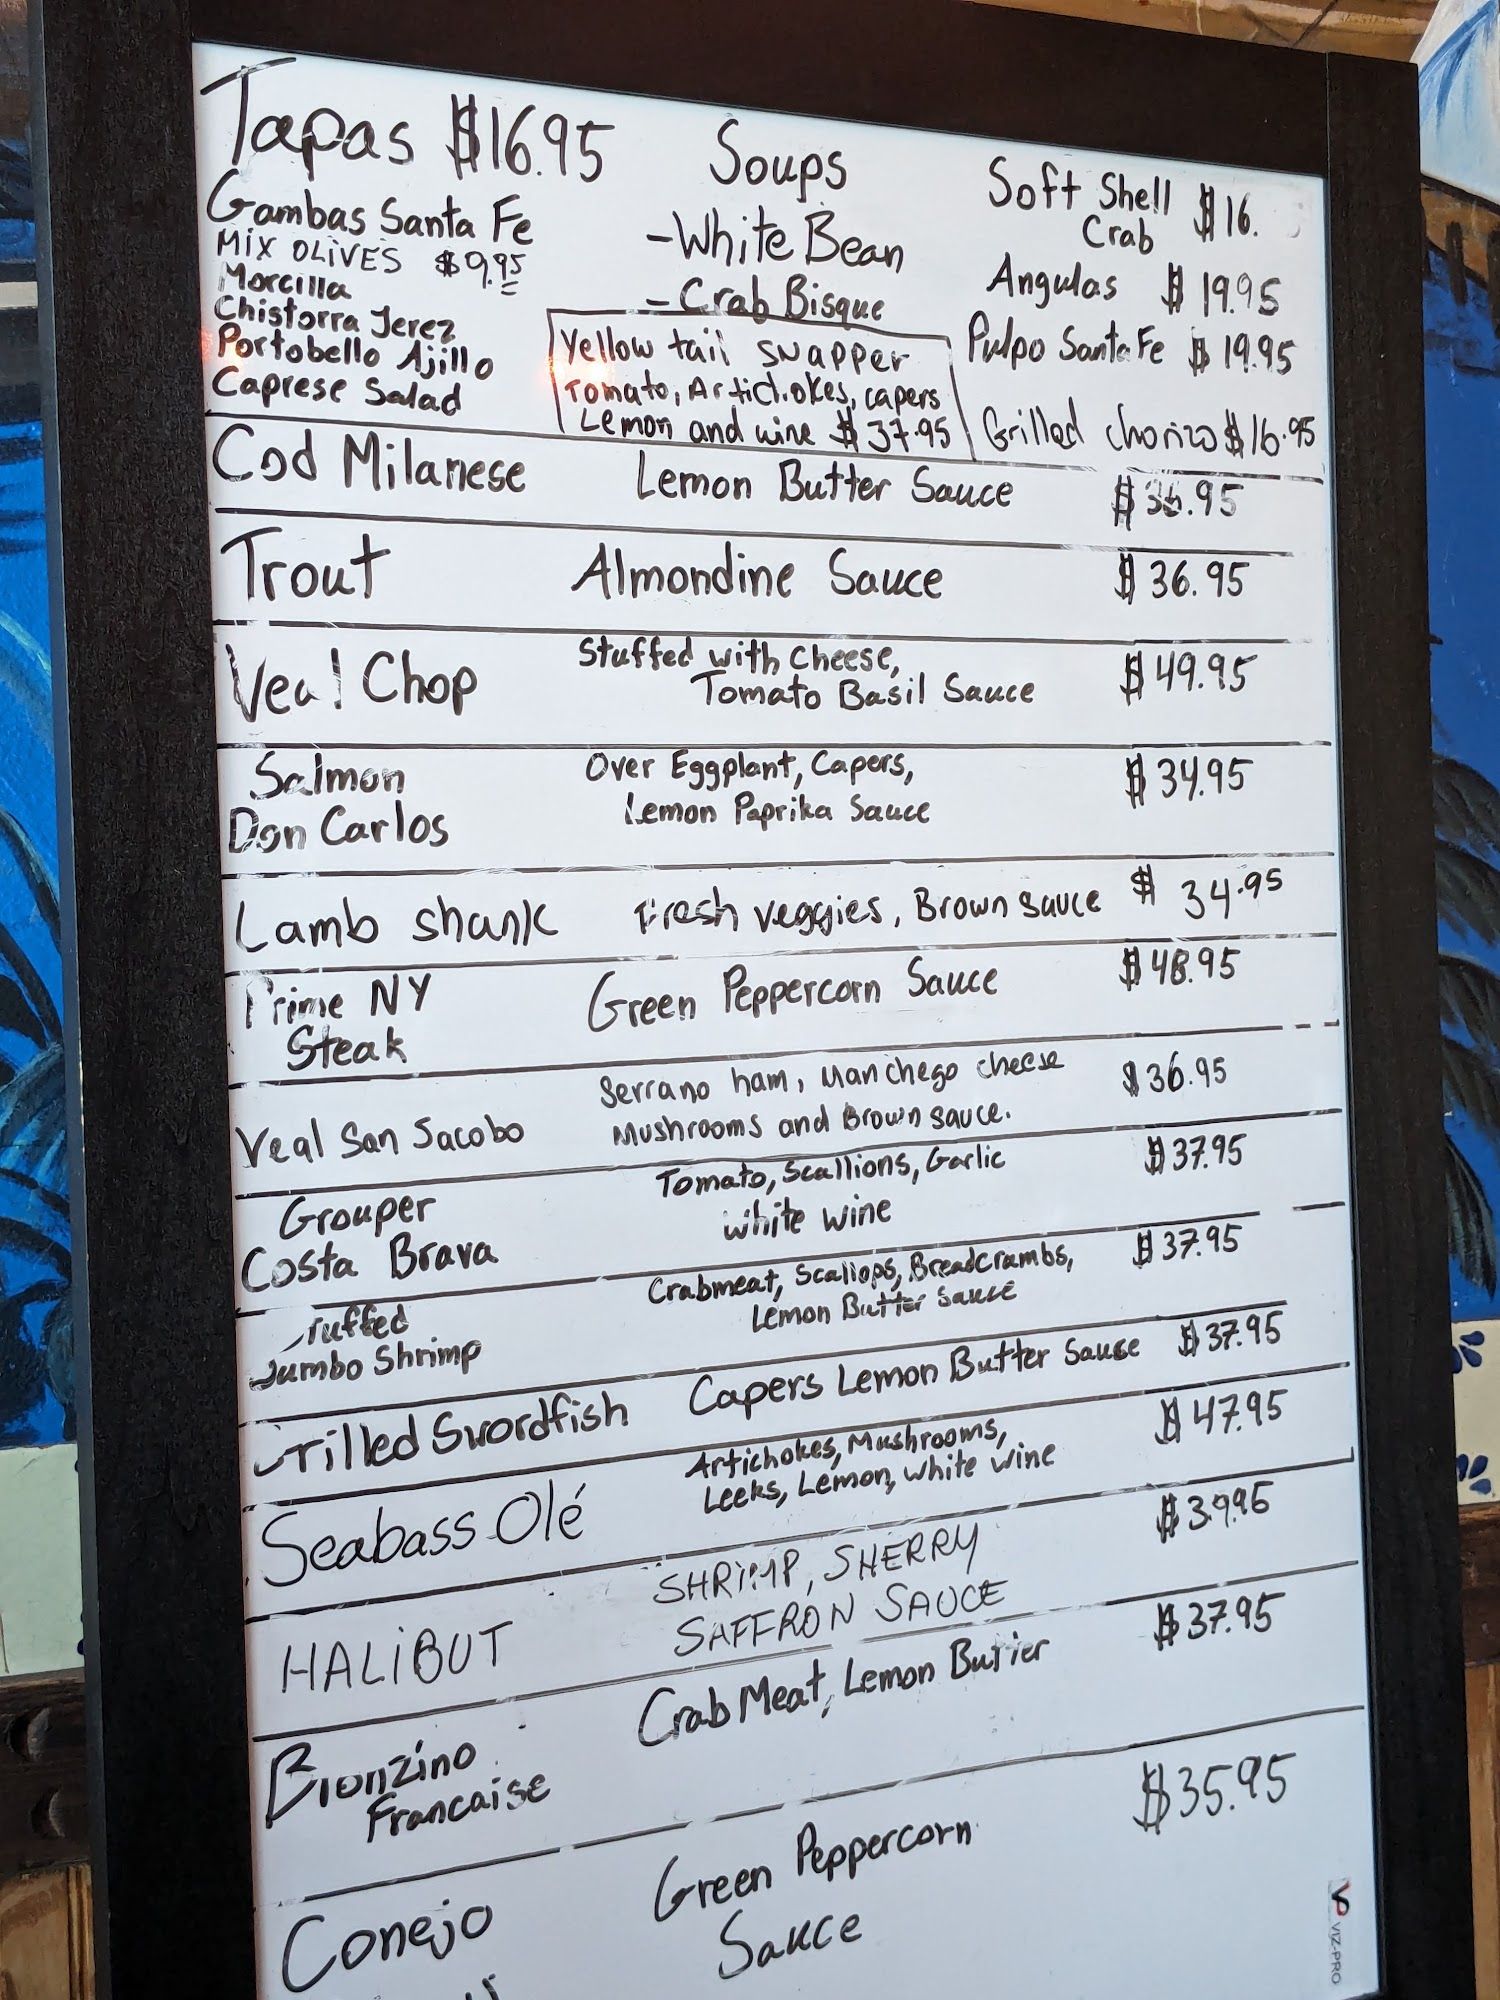 Tapas $16.95
Gambas Santa Fe
MIX OLIVES $9.95
Morcilla
Chistorra Jerez
Portobello Ajillo
Caprese Salad
Soups
-White Bean
-Crab Bisque
Yellow tail snapper
Tomato, Artichokes, capers
Lemon and wine $37.95
Soft Shell Crab $16.
Angulas $19.95
Pulpo Santa Fe $19.95
Grilled chorizo $16.95
Cod Milanese Lemon Butter Sauce
Trout Almondine Sauce $36.95
Veal Chop Stuffed with Cheese, $49.95
Tomato Basil Sauce
Salmon Over Eggplant, Capers, $34.95
Don Carlos Lemon Paprika Sauce
Lamb shank Fresh veggies, Brown sauce $34.95
Prime NY Green Peppercorn Sauce $48.95
Steak
Veal San Jacobo Serrano ham, Manchego cheese $36.95
Mushrooms and Brown sauce.
Grouper Tomato, Scallions, Garlic $37.95
Costa Brava white wine
tuffed Crabmeat, Scallops, Breadcrambs, $37.95
Jumbo Shrimp Lemon Butter Sauce
Grilled Swordfish Capers Lemon Butter Sause $37.95
Seabass Olé Artichokes, Mushrooms, $47.95
Leeks, Lemon, white wine
HALIBUT SHRIMP, SHERRY $39.95
SAFFRON SAUCE
Bronzino Crab Meat, Lemon Butter $37.95
Francaise
Conejo Green Peppercorn $35.95
Sauce
VIZ-PRO